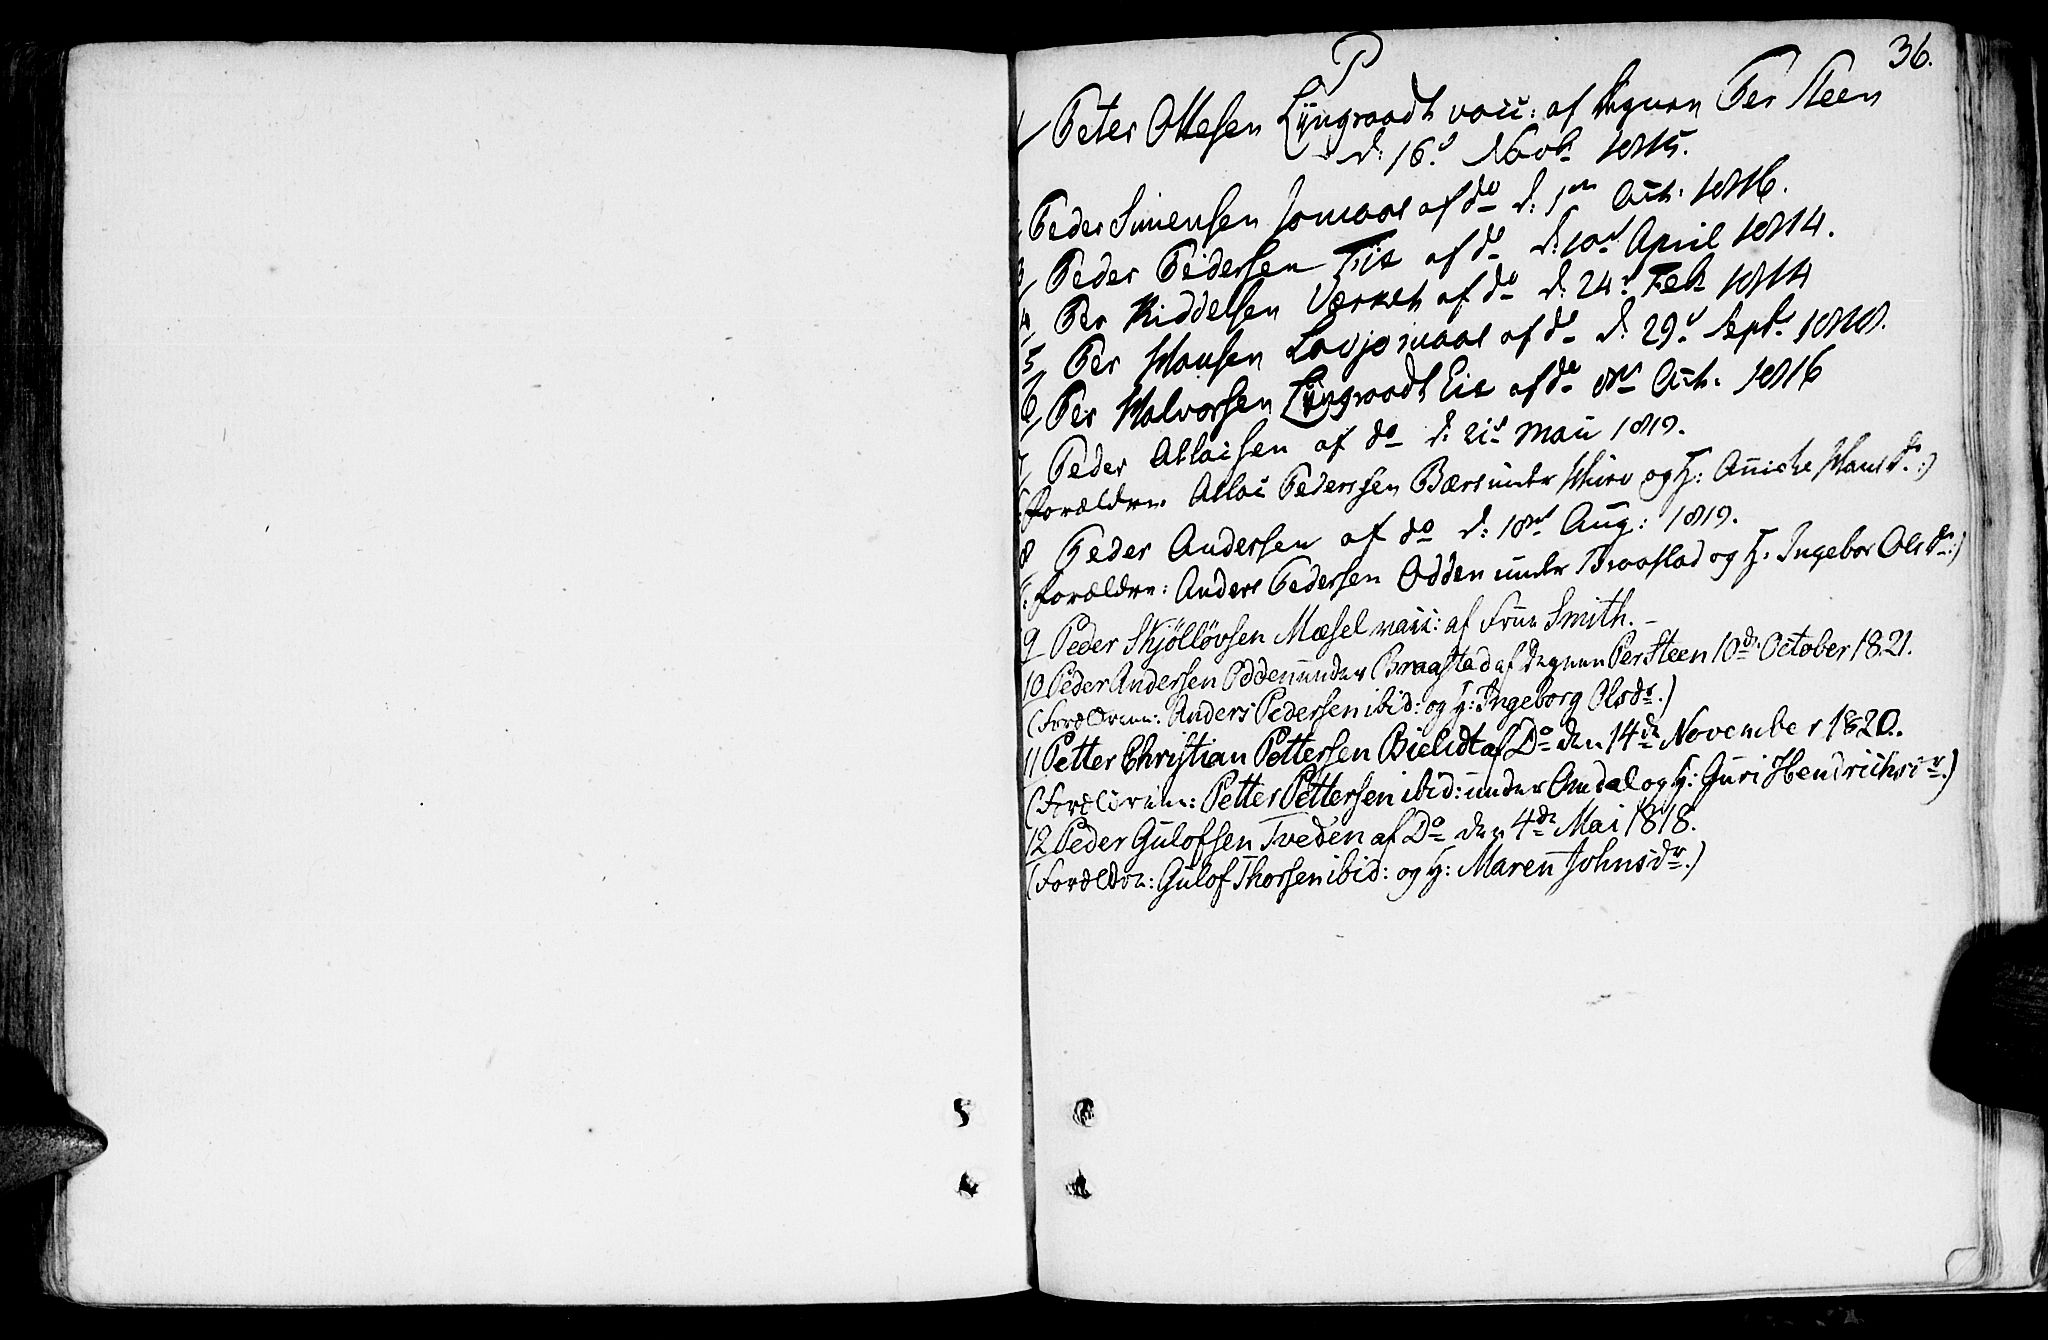 36.
P
1/ Peter Ottesen Lÿngraadt vacc: af degnen Per Steen
d: 16.d Novb. 1815.
Peder Simensen af do d: 1ste Oct: 1816.
3/ Peder Pedersen Fie af do d: 10d April 1814.
4/ Per Kiddelsen Værket af do d: 24d Feb 1814
5/ Per Hansen af do d: 29d Septb. 1818.
6/ Per Halvorsen Lÿngraadt Eie af do 8de Oct. 1816
7/ Peder Atlaisen af do d: 21d Maii 1819.
(:Forældre. Atlai Pederssen under og H: Hansdr:)
8/ Peder Andersen af do d: 18de Aug: 1819.
(:Forældre: Anders Pedersen Odden under Braastad og H: Ingebor Olsdr:)
9 Peder Skjölløvsen Mæsel vacc: af Frue Smith. –
10 Peder Andersen Odden under Braastad af degnen Per Steen 10de October 1821.
(Forældrene: Anders Pedersen ibid: og H: Ingeborg Olsdr.)
11 Petter Christian Pettersen Bielidt af Do den 14de November 1820.
(Forældrene: Petter Pettersen ibid: under Omdal og H: Guri Hendrichsdr.)
12 Peder Gulofsen Tveden af Do den 4de Mai 1818.
(Forældre: Gulof Thorsen ibid: og H: Maren Johnsdr.)